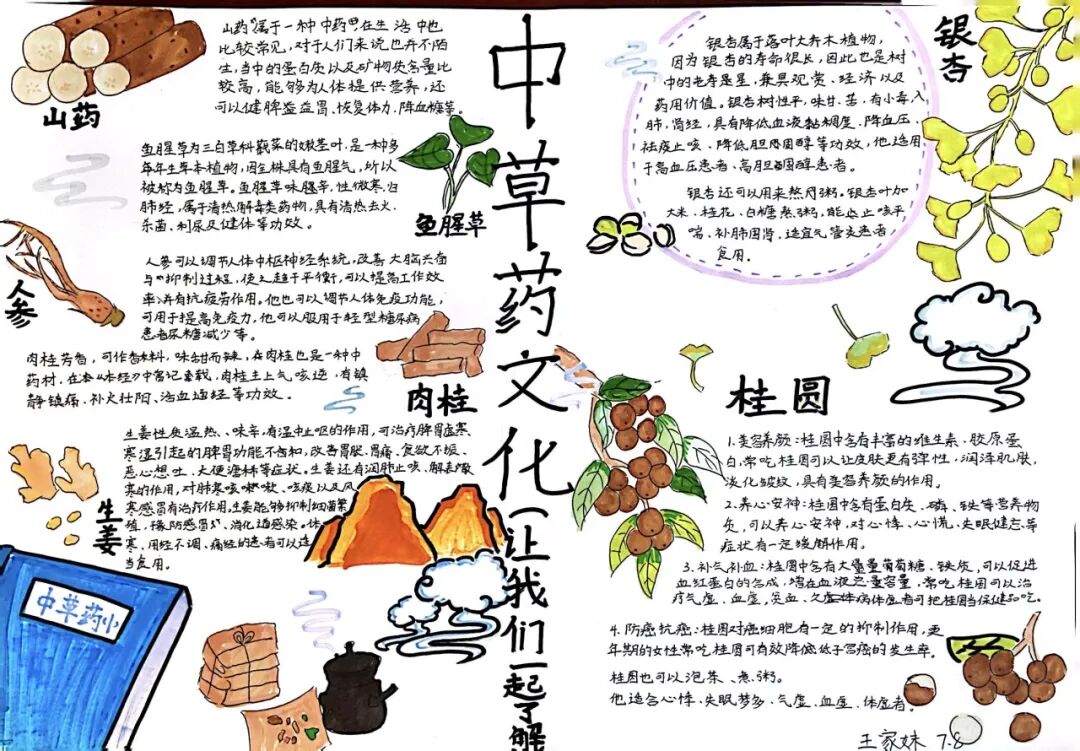 中草药文化—让我们一起了解
山药
山药属于一种中药，在生活中也
比较常见，对于人们来说也并不陌
生，当中的蛋白质以及矿物质含量比
较高，能够为人体提供营养，还
可以健脾益胃、恢复体力、降血糖等。
鱼腥草为三白草科蕺菜的嫩茎叶，是一种多
年生草本植物，因全株具有鱼腥气，所以
被称为鱼腥草。鱼腥草味腥辛，性微寒，归
肺经，属于清热解毒类药物，具有清热去火、
杀菌、利尿及健体等功效。
鱼腥草
人参
人参可以调节人体中枢神经系统，改善大脑兴奋
与抑制过程，使之趋于平衡，可以提高工作效
率，并有抗疲劳作用。他也可以调节人体免疫功能，
可用于提高免疫力，他可以服用于轻型糖尿病
患者尿糖减少等。
肉桂芳香，可作香料，味甜而辣，肉桂也是一种中
药材，在《本经》中曾记载，肉桂主上气咳逆，有镇
静镇痛、补火壮阳、活血通经等功效。
肉桂
生姜
生姜性质温热、味辛，有温中止呕的作用，可治疗脾胃虚寒、
寒湿引起的脾胃功能不告和，改善胃胀、胃痛、食欲不振、
恶心想吐、大便溏稀等症状。生姜还有润肺止咳、解表散
寒的作用，对肺寒咳嗽、咳痰以及风
寒感冒有治疗作用。生姜能够抑制细菌繁
殖，预防感冒、消化道感染。体
寒、月经不调、痛经的患者可以适
当食用。
中草药
银杏
银杏属于落叶大乔木植物，
因为银杏的寿命很长，因此也是树
中的老寿星，兼具观赏、经济以及
药用价值。银杏树性平，味甘、苦，有小毒，入
肺，肾经，具有降低血液黏稠度、降血压、
祛痰止咳、降低胆固醇等功效，他适用
于高血压患者、高胆固醇患者。
银杏还可以用来熬粥。银杏叶加
大米、桂花、白糖熬粥，能止咳平
喘、补肺固肾，适宜气管炎患者
食用。
桂圆
1.美容养颜：桂圆中含有丰富的维生素、胶原蛋
白，常吃桂圆可以让皮肤更有弹性，润泽肌肤，
淡化皱纹，具有美容养颜的作用。
2.养心安神：桂圆中含有蛋白质、磷、铁等营养物
质，可以养心安神，对心悸、心慌、失眠健忘等
症状有一定缓解作用。
3.补气补血：桂圆中含有大量葡萄糖、铁质，可以促进
血红蛋白的合成，增在血液容量，常吃桂圆可以治
疗气虚、血虚，贫血、久病体虚者可把桂圆当保健品吃。
4.防癌抗癌：桂圆对癌细胞有一定的抑制作用，更
年期的女性常吃桂圆可有效降低低子宫癌的发生率。
桂圆也可以泡茶、煮粥。
他适合心悸、失眠梦多、气虚、血虚、体虚者。
王家妹 7.8